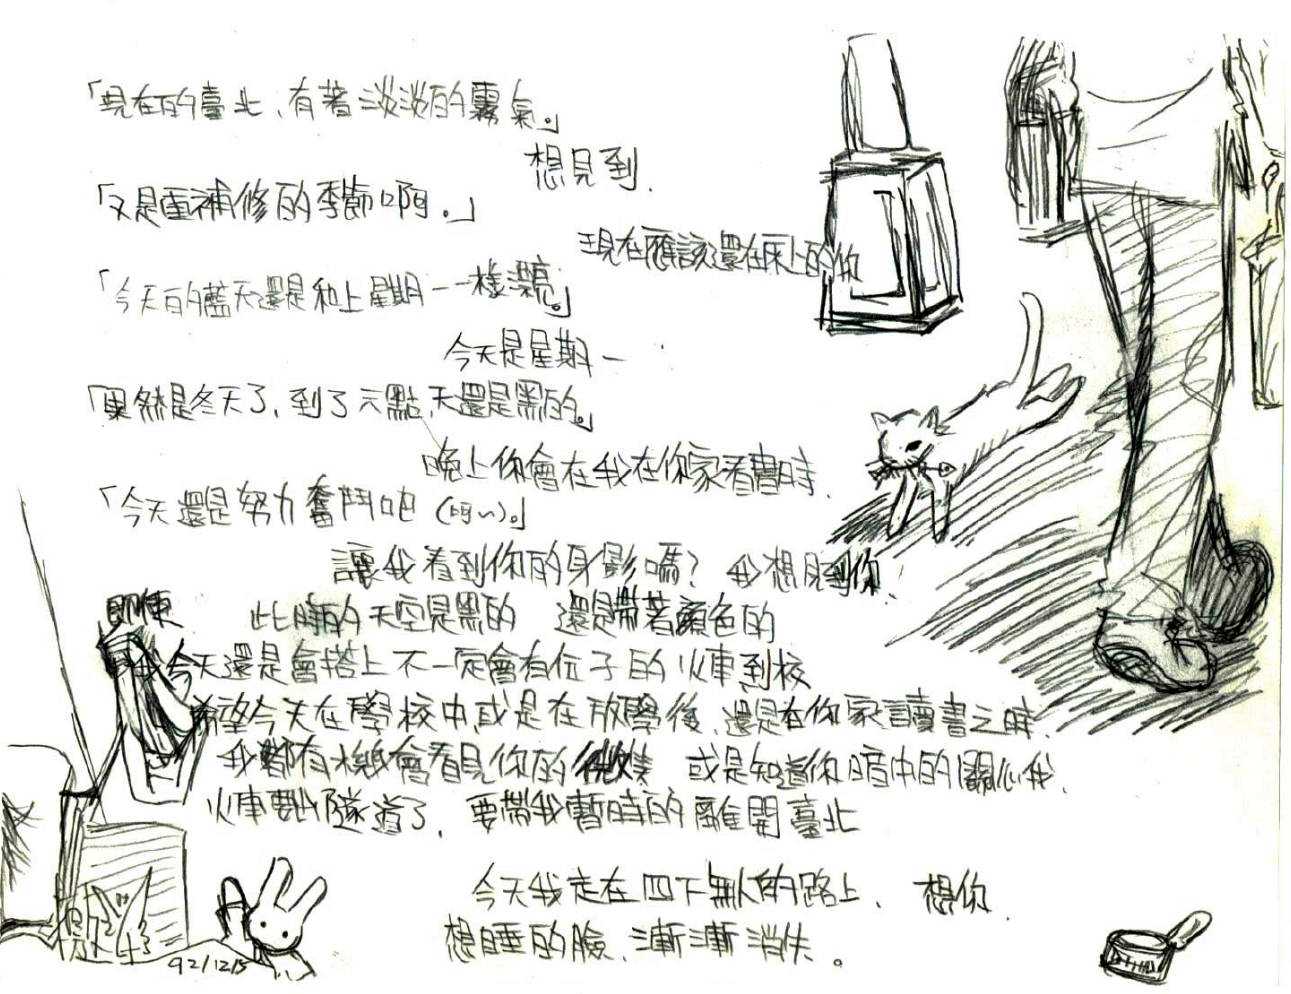 「現在的臺北、有著淡淡的霧氣。」
想見到、
「又是重補修的季節啊。」
現在應該還在床上的你
「今天的藍天還是和上星期一一樣漂亮。」
今天是星期一
「果然是冬天了、到了六點、天還是黑的。」
晚上你會在我在你家看書時、
「今天還是努力奮鬥吧（呵~）。」
讓我看到你的身影嗎？ 我想見到你、
即使 此時的天空是黑的 還是帶著顏色的
我今天還是會搭上不一定會有位子的火車到校
希望今天在學校中或是在放學後、還是在你家讀書之時、
我都有機會看見你的微笑 或是知道你暗中的關心我、
火車 隧道了、要帶我暫時的離開臺北
今天我走在四下無人的路上、 想你、
想睡的臉、漸漸消失。
92/12/15